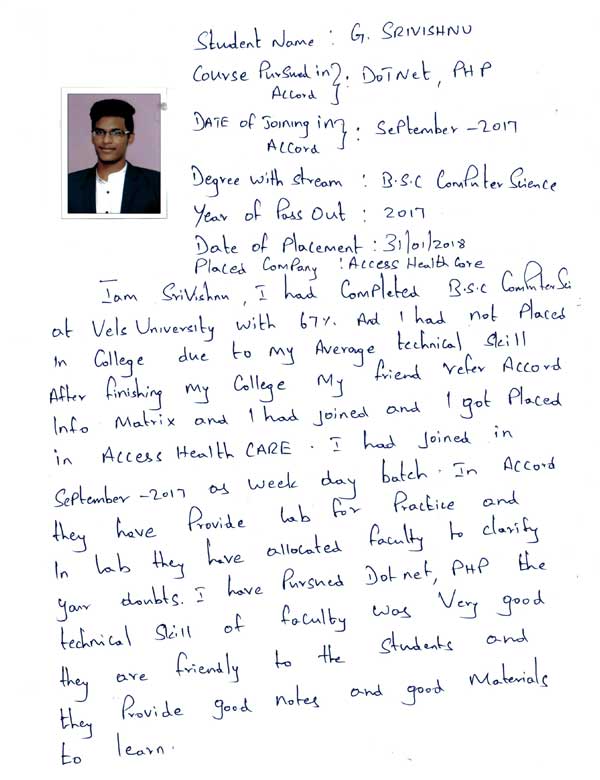 Student Name : G. SRIVISHNU
Course Pursued in Accord } : DOTNet, PHP
DATE of Joining in Accord } : September - 2017
Degree with stream : B.S.C Computer Science
Year of Pass Out : 2017
Date of Placement : 31/01/2018
Placed Company : Access Health Care
Iam SriVishnu, I had Completed B.S.C Computer Sci
at Vels University with 67%. And I had not Placed
in College due to my Average technical Skill
After finishing my College My friend refer Accord
Info Matrix and I had joined and I got Placed
in Access Health CARE. I had Joined in
September - 2017 as week day batch. In Accord
they have Provide lab for Practice and
In lab they have allocated faculty to clarify
your doubts. I have Pursued Dot net, PHP the
technical Skill of faculty was Very good
they are friendly to the Students and
they Provide good notes and good Materials
to learn.